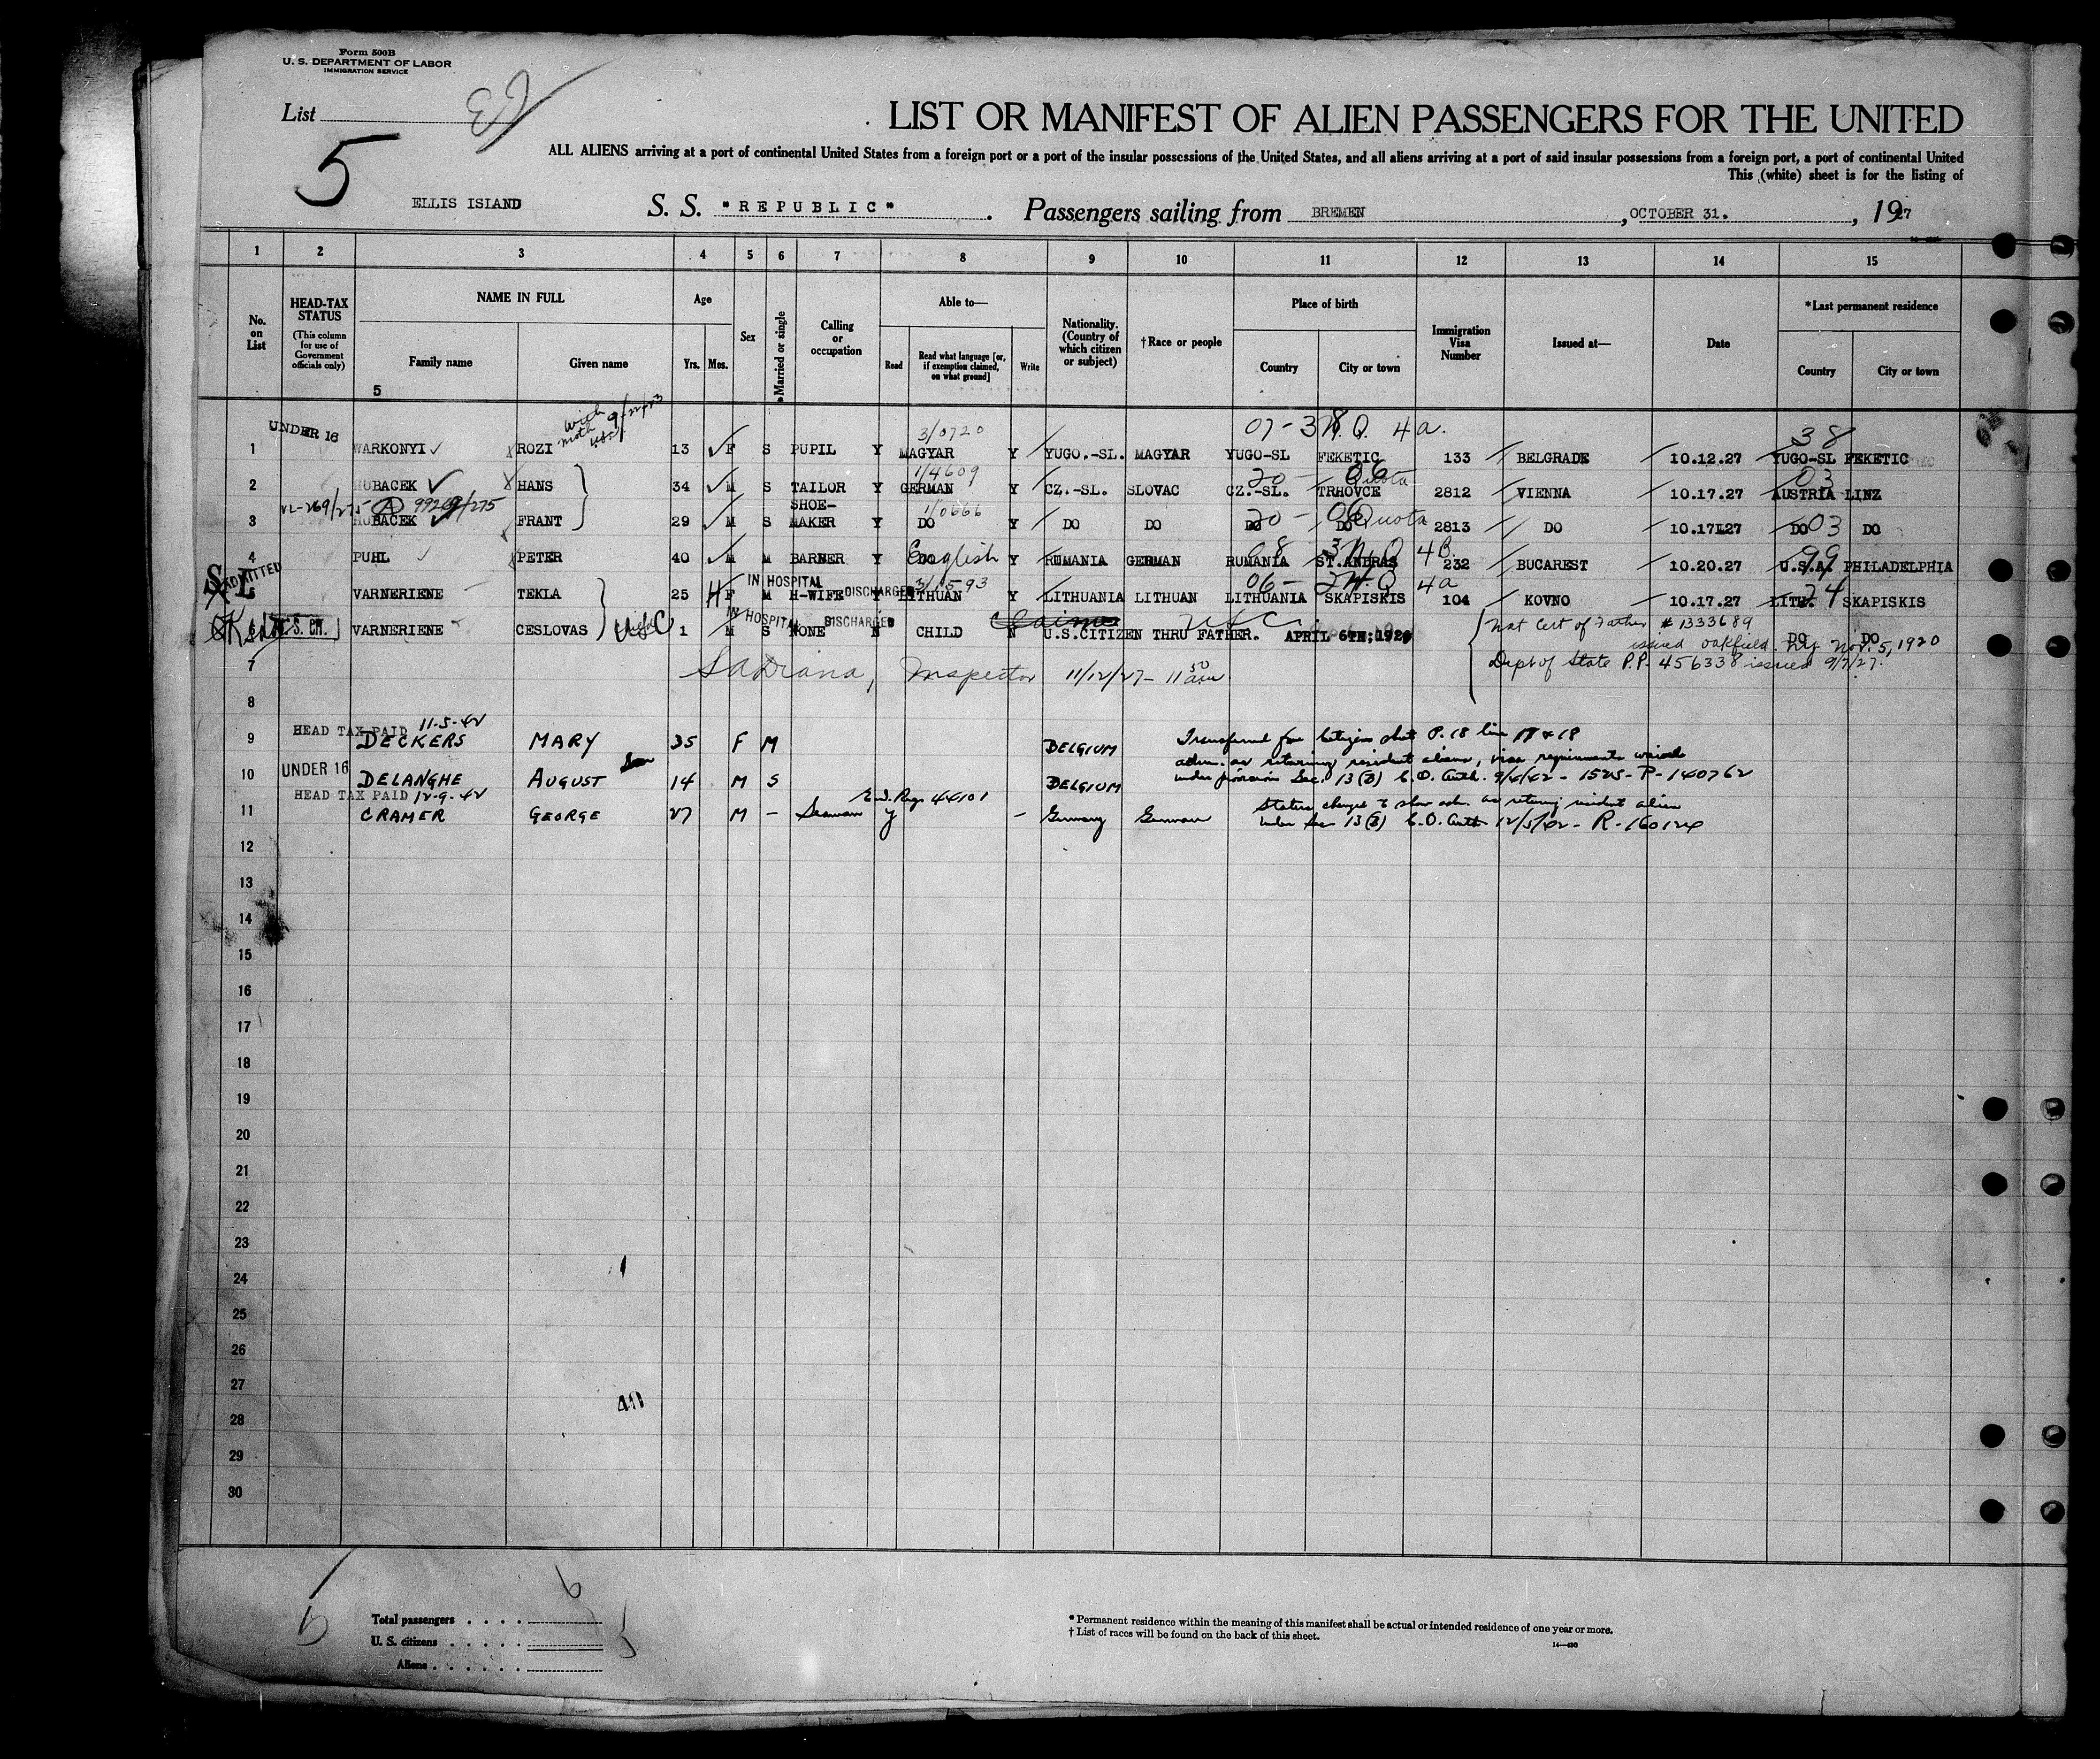 Form 500B
U. S. DEPARTMENT OF LABOR
IMMIGRATION SERVICE
List
5
LIST OR MANIFEST OF ALIEN PASSENGERS FOR THE UNITED
ALL ALIENS arriving at a port of continental United States from a foreign port or a port of the insular possessions of the United States, and all aliens arriving at a port of said insular possessions from a foreign port, a port of continental United
This (white) sheet is for the listing of
ELLIS ISLAND S. S. "REPUBLIC". Passengers sailing from BREMEN, OCTOBER 31., 1927
1 2 3 4 5 6 7 8 9 10 11 12 13 14 15
No. on List
HEAD-TAX STATUS (This column for use of Government officials only)
NAME IN FULL
Family name
Given name
5
Age
Yrs. Mos.
Sex
Married or single
Calling or occupation
Able to—
Read
Read what language [or, if exemption claimed, on what ground]
Write
Nationality. (Country of which citizen or subject)
†Race or people
Place of birth
Country
City or town
Immigration Visa Number
Issued at—
Date
*Last permanent residence
Country
City or town
with moth
3/0720 07-3 N.Q. 4a. 38
UNDER 16
1 WARKONYI ROZI 13 F S PUPIL Y MAGYAR Y YUGO.-SL. MAGYAR YUGO-SL FEKETIC 133 BELGRADE 10.12.27 YUGO-SL FEKETIC
1/4609 20 - 06 Quota 03
2 HUBACEK HANS 34 M S TAILOR Y GERMAN Y CZ.-SL. SLOVAC CZ.-SL. TRHOVCE 2812 VIENNA 10.17.27 AUSTRIA LINZ
1/0666 20 - 06 Quota 03
3 HUBACEK FRANT 29 M S SHOE-MAKER Y DO Y DO DO DO DO 2813 DO 10.17.27 DO DO
English 3 N.Q. 4B. 99
4 PUHL PETER 40 M M BARBER Y DO Y RUMANIA GERMAN RUMANIA ST.ANDRAS 232 BUCAREST 10.20.27 U.S.A. PHILADELPHIA
ADMITTED
IN HOSPITAL DISCHARGED 06- N.Q. 4a 24
VARNERIENE TEKLA 25 F M H-WIFE Y LITHUAN Y LITHUANIA LITHUAN LITHUANIA SKAPISKIS 104 KOVNO 10.17.27 LITH. SKAPISKIS
IN HOSPITAL DISCHARGED Claims USC
VARNERIENE CESLOVAS USC 1 M S NONE N CHILD N U.S.CITIZEN THRU FATHER. APRIL 6TH; DO DO
Nat Cert of Father # 1333689
issued Oakfield. N.Y. Nov. 5, 1920
Dept of State P.P. 456338 issued 9/7/27.
7 Inspector 11/12/27 - 11 50 am
8
HEAD TAX PAID 11-5-42
9 DECKERS MARY 35 F M BELGIUM Transferred from Citizen sheet P. 18 line 17 & 18
adm. as returning resident aliens, visa requirements waived
UNDER 16
10 DELANGHE AUGUST son 14 M S BELGIUM under provision Sec. 13 (B) C.O. Auth. 9/4/42 - 1525- P-140762
HEAD TAX PAID 12-9-42
11 CRAMER GEORGE 27 M - Seaman y - Germany German Status changed to show adm. as returning resident alien
under Sec 13 (B) C.O. Auth 12/5/42 - R-160124
12
13
14
15
16
17
18
19
20
21
22
23
24
25
26
27
40
28
29
30
Total passengers . . . . 6
U. S. citizens . . . . .
Aliens . . . . . . 5
* Permanent residence within the meaning of this manifest shall be actual or intended residence of one year or more.
† List of races will be found on the back of this sheet.